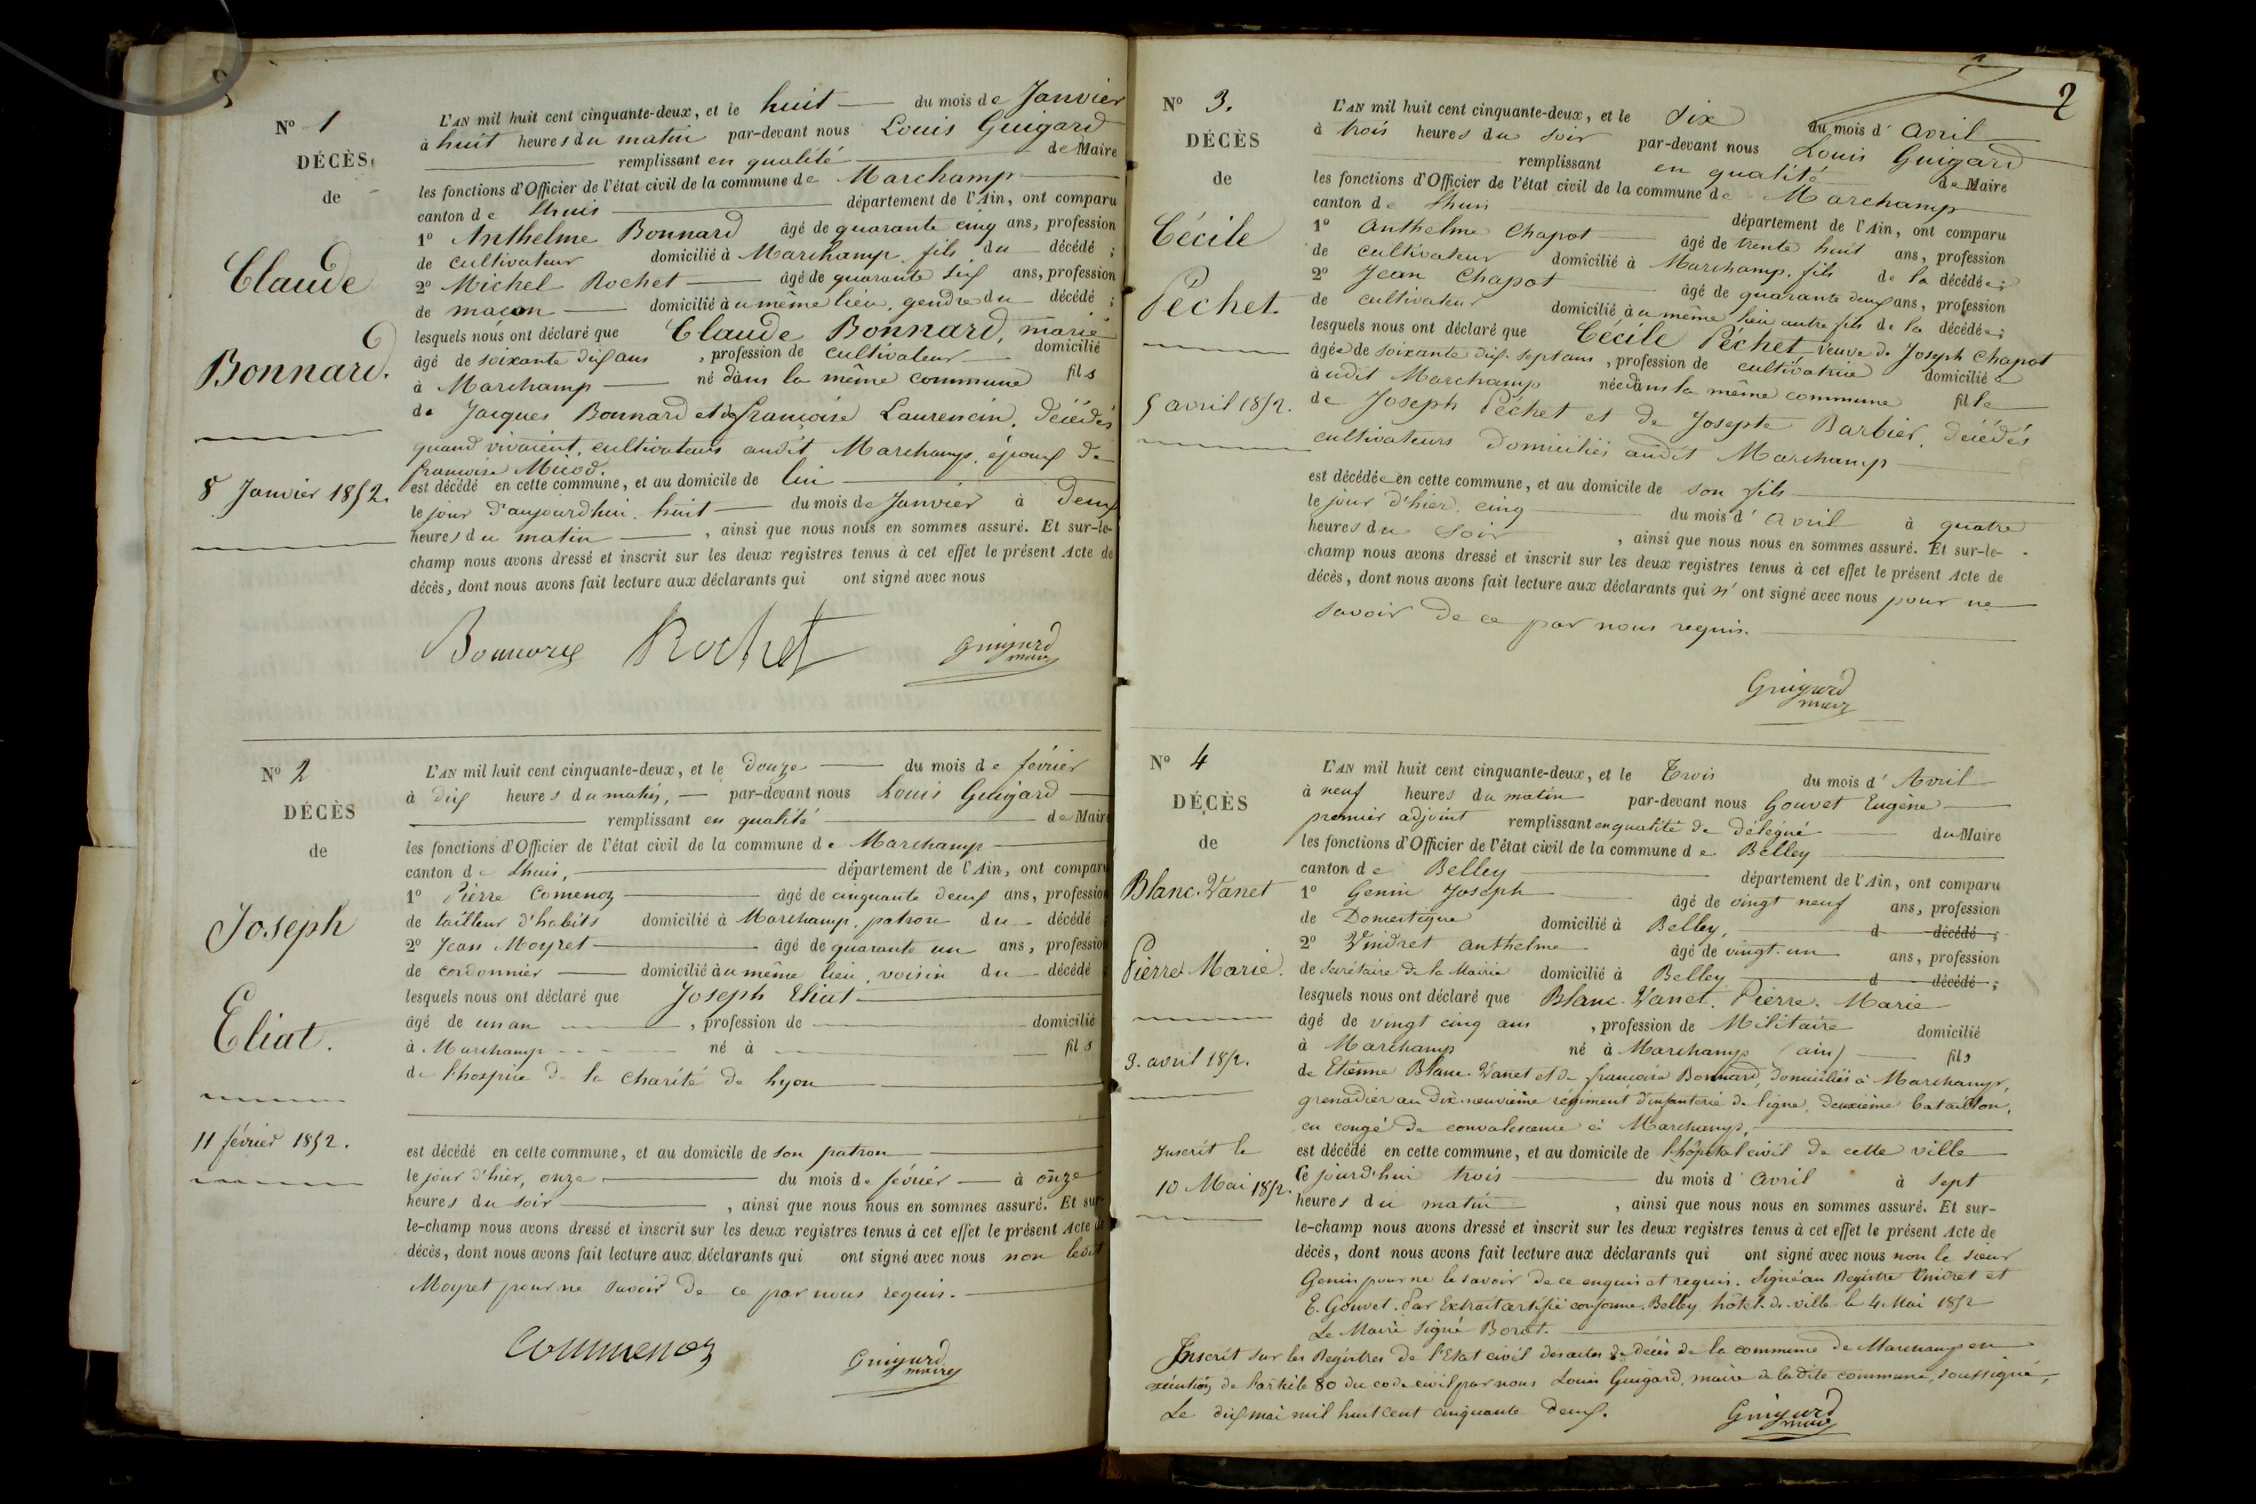 N° 1
DÉCÈS
de
Claude
Bonnard.
8 Janvier 1852.
L'AN mil huit cent cinquante-deux, et le huit du mois de Janvier
à huit heures du matin par-devant nous Louis Guigard
remplissant en qualité de Maire
les fonctions d'Officier de l'état civil de la commune de Marchamp
canton de Lhuis département de l'Ain, ont comparu
1° Anthelme Bonnard âgé de quarante cinq ans, profession
de cultivateur domicilié à Marchamp, fils du décédé ;
2° Michel Rochet âgé de quarante six ans, profession
de maçon domicilié à u même lieu, gendre du décédé ;
lesquels nous ont déclaré que Claude Bonnard, marié
âgé de soixante dix ans , profession de cultivateur domicilié
à Marchamp né dans la même commune fils
de Jacques Bonnard et de françoise Laurencin, décédés
quand vivaient, cultivateurs audit Marchamp, époux de
françoise Micod.
est décédé en cette commune, et au domicile de lui
le jour d'aujourdhui, huit du mois de Janvier à deux
heures du matin , ainsi que nous nous en sommes assuré. Et sur-le-
champ nous avons dressé et inscrit sur les deux registres tenus à cet effet le présent Acte de
décès, dont nous avons fait lecture aux déclarants qui ont signé avec nous
Bonnard Rochet Guigard
maire
N° 2
DÉCÈS
de
Joseph
Eliat.
11 février 1852.
L'AN mil huit cent cinquante-deux, et le douze du mois de février
à dix heures du matin, par-devant nous Louis Guigard
remplissant en qualité de Maire
les fonctions d'Officier de l'état civil de la commune de Marchamp
canton de Lhuis, département de l'Ain, ont comparu
1° Pierre Comenoz âgé de cinquante deux ans, profession
de tailleur d'habits domicilié à Marchamp, patron du décédé
2° Jean Moyret âgé de quarante un ans, profession
de cordonnier domicilié à u même lieu, voisin du décédé
lesquels nous ont déclaré que Joseph Eliat
âgé de un an , profession de domicilié
à Marchamp né à fils
de l'hospice de la Charité de Lyon
est décédé en cette commune, et au domicile de son patron
le jour d'hier, onze du mois de février à onze
heures du soir , ainsi que nous nous en sommes assuré. Et sur-
le-champ nous avons dressé et inscrit sur les deux registres tenus à cet effet le présent Acte de
décès, dont nous avons fait lecture aux déclarants qui ont signé avec nous non ledit
Moyret pour ne savoir de ce par nous requis.
Commenoz Guigard
maire
2
N° 3.
DÉCÈS
de
Cécile
Péchet.
5 avril 1852.
L'AN mil huit cent cinquante-deux, et le six du mois d' avril
à trois heures du soir par-devant nous Louis Guigard
remplissant en qualité de Maire
les fonctions d'Officier de l'état civil de la commune de Marchamp
canton de Lhuis département de l'Ain, ont comparu
1° Anthelme Chapot âgé de trente huit ans, profession
de cultivateur domicilié à Marchamp, fils de la décédée ;
2° Jean Chapot âgé de quarante deux ans, profession
de cultivateur domicilié à u même lieu autre fils de la décédée ;
lesquels nous ont déclaré que Cécile Péchet veuve de Joseph Chapot
âgée de soixante dix-sept ans , profession de cultivatrice domiciliée
à udit Marchamp née dans la même commune fille
de Joseph Péchet et de Josepte Barbier, décédés
cultivateurs domiciliés audit Marchamp
est décédée en cette commune, et au domicile de son fils
le jour d'hier, cinq du mois d' avril à quatre
heures du soir , ainsi que nous nous en sommes assuré. Et sur-le-
champ nous avons dressé et inscrit sur les deux registres tenus à cet effet le présent Acte de
décès, dont nous avons fait lecture aux déclarants qui n' ont signé avec nous pour ne
savoir de ce par nous requis.
Guigard
maire
N° 4
DÉCÈS
de
Blanc-Vanet
Pierre Marie.
3. avril 1852.
Inscrit le
10 Mai 1852.
L'AN mil huit cent cinquante-deux, et le Trois du mois d' Avril
à neuf heures du matin par-devant nous Gouvet Eugène
premier adjoint remplissant en qualité de délégué du Maire
les fonctions d'Officier de l'état civil de la commune de Belley
canton de Belley département de l'Ain, ont comparu
1° Genin Joseph âgé de vingt neuf ans, profession
de Domestique domicilié à Belley, d décédé ;
2° Vindret anthelme âgé de vingt-un ans, profession
de Secrétaire de la Mairie domicilié à Belley d décédé ;
lesquels nous ont déclaré que Blanc-Vanet. Pierre. Marie
âgé de vingt cinq ans , profession de Militaire domicilié
à Marchamp né à Marchamp (ain) fils
de Etienne Blanc-Vanet et de françoise Bonnard, domiciliés à Marchamp,
grenadier au dix-neuvième régiment d'infanterie de ligne, deuxième bataillon,
en congé de convalescence à Marchamp,
est décédé en cette commune, et au domicile de l'hôpital civil de cette ville
Ce jourd'hui trois du mois d avril à sept
heures du matin , ainsi que nous nous en sommes assuré. Et sur-
le-champ nous avons dressé et inscrit sur les deux registres tenus à cet effet le présent Acte de
décès, dont nous avons fait lecture aux déclarants qui ont signé avec nous non le sieur
Genin pour ne le savoir de ce enquis et requis. Signé au Registre Vindret et
E. Gouvet. Par Extrait certifié conforme. Belley hôtel-de-ville le 4 Mai 1852
Le Maire Signé Borot.
Inscrit sur les Registres de l'Etat civil des actes de décès de la commune de Marchamp en
exécution de l'article 80 du code civil par nous Louis Guigard, maire de la dite commune, soussigné,
Le dix mai mil huit cent cinquante deux.
Guigard
maire